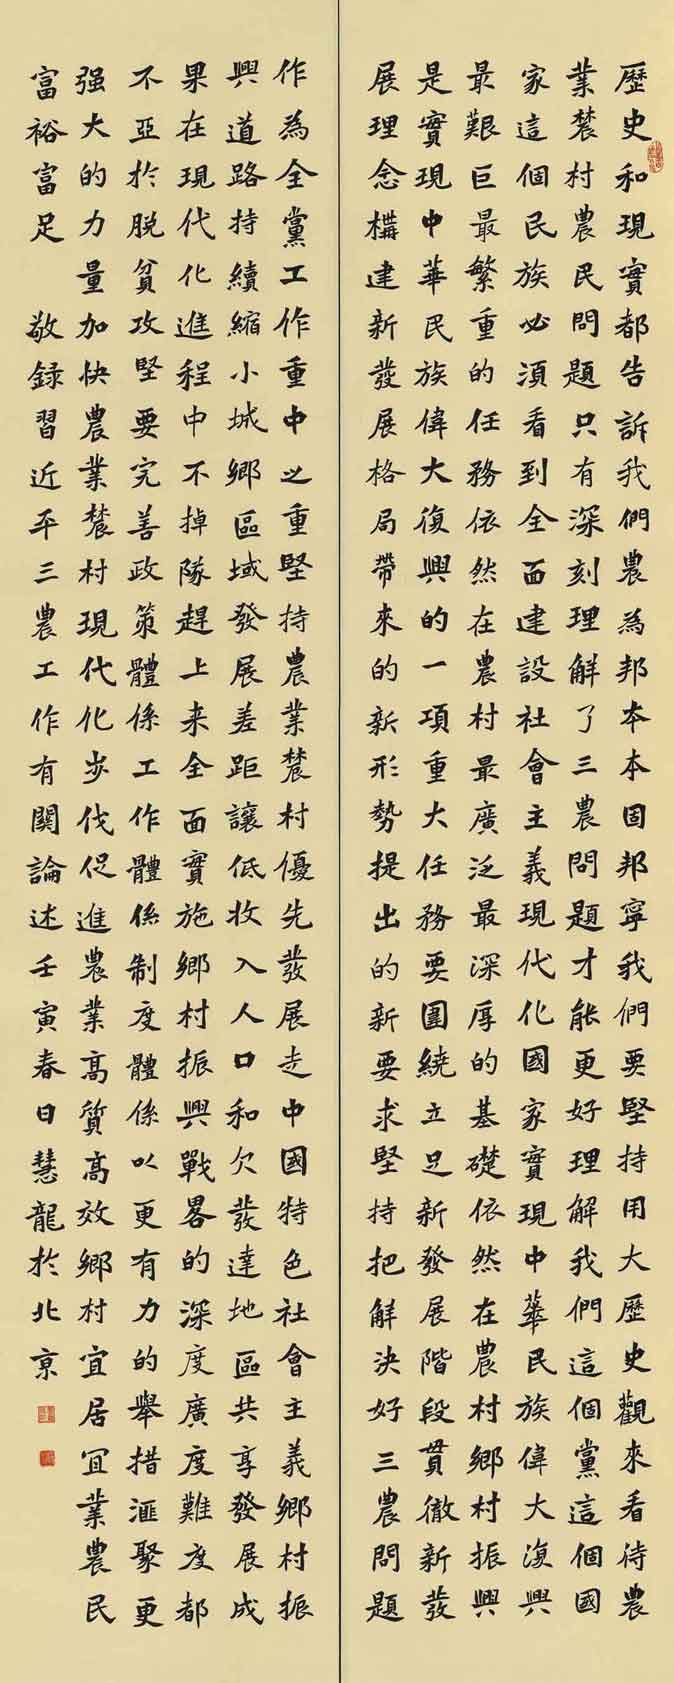 歷史和現實都告訴我們農為邦本本固邦寧我們要堅持用大歷史觀來看待農
業農村農民問題只有深刻理解了三農問題才能更好理解我們這個黨這個國
家這個民族必須看到全面建設社會主義現代化國家實現中華民族偉大復興
最艱巨最繁重的任務依然在農村最廣泛最深厚的基礎依然在農村鄉村振興
是實現中華民族偉大復興的一項重大任務要圍繞立足新發展階段貫徹新發
展理念構建新發展格局帶來的新形勢提出的新要求堅持把解決好三農問題
作為全黨工作重中之重堅持農業農村優先發展走中國特色社會主義鄉村振
興道路持續縮小城鄉區域發展差距讓低收入人口和欠發達地區共享發展成
果在現代化進程中不掉隊趕上来全面實施鄉村振興戰略的深度廣度難度都
不亞於脫貧攻堅要完善政策體係工作體係制度體係以更有力的舉措滙聚更
强大的力量加快農業農村現代化步伐促進農業高質高效鄉村宜居宜業農民
富裕富足 敬録習近平三農工作有關論述壬寅春日慧龍於北京